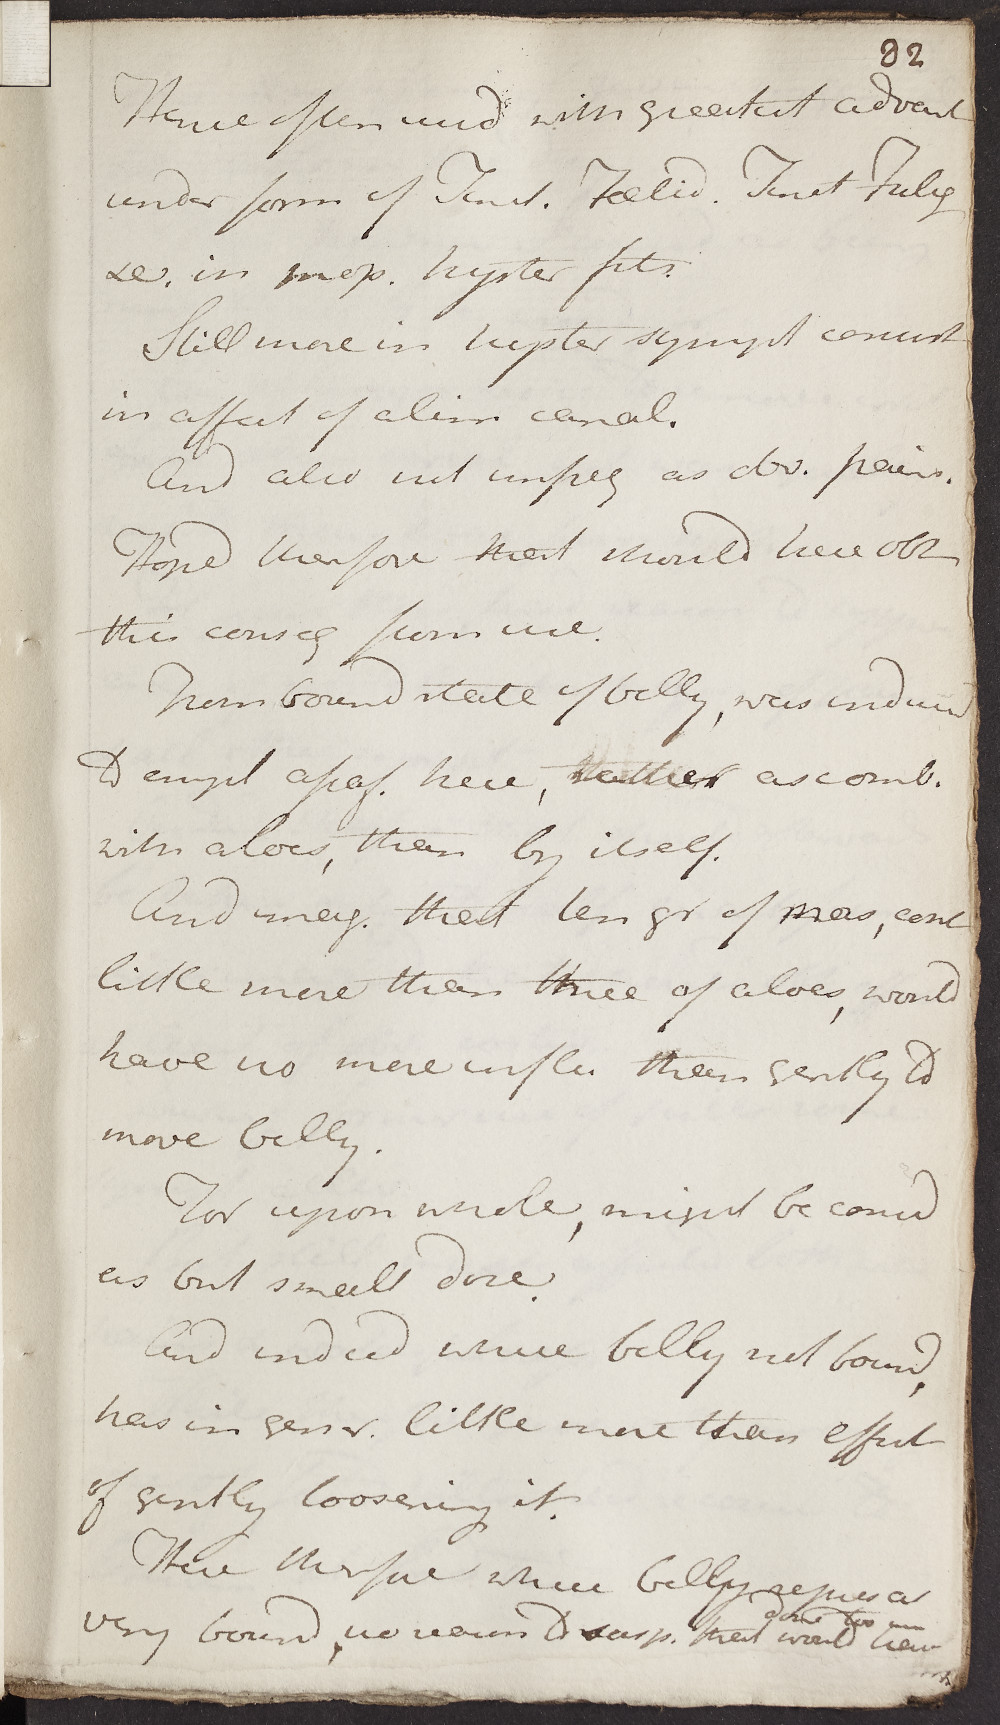 82
Hence often used with greatest advant
under form of Tinct. Fœtid. Tinct Fulig
&c. in hyster fits.
Still more in hyster sympt consist
in affect of alim canal.
And also not unfreq as div. pains.
Hoped therfore that should here obt
this conseq from use.
From bound state of belly, was induced
to empl asaf. here, rather as comb.
with aloes, than by itself.
And imag. that ten gr of mass, cont
little more than three of aloes, would
have no more influ than gently to
move belly.
For upon whole, might be consid
as but small dose.
And indeed where belly not bound,
has in gener. little more than effect
of gently loosening it.
Here therfore where belly repres as
very bound, no reason to susp. that would have
dose too